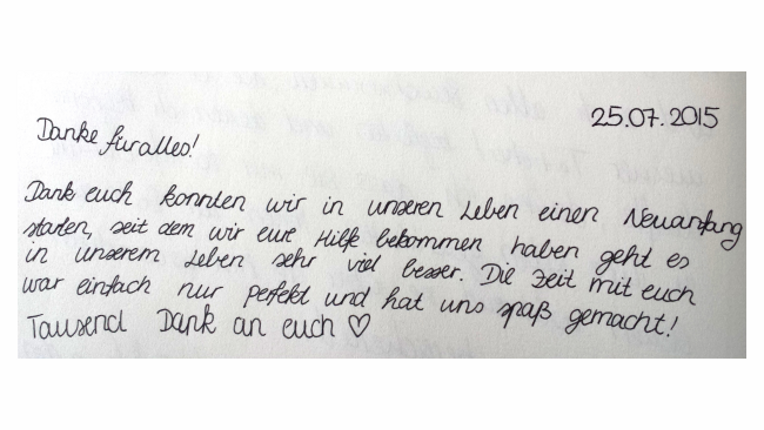 25.07.2015
Danke für alles!
Dank euch konnten wir in unseren Leben einen Neuanfang
starten, seit dem wir eure Hilfe bekommen haben geht es
in unserem Leben sehr viel besser. Die Zeit mit euch
war einfach nur perfekt und hat uns spaß gemacht!
Tausend Dank an euch ♡